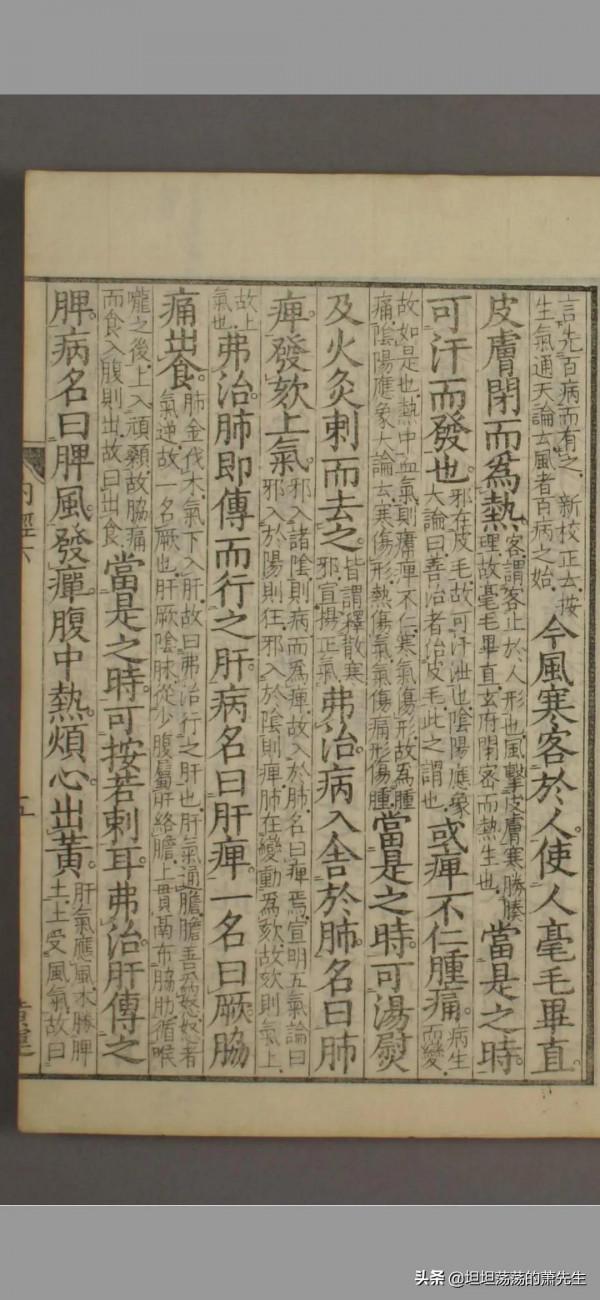 言先百病而有之 新校正云按生氣通天論云風者百病之始今風寒客於人使人毫毛畢直
皮膚閉而為熱客謂客止於人形也風擊皮膚寒勝腠理故毫毛畢直玄府閉密而熱生也當是之時
可汗而發也邪在皮毛故可汗泄也陰陽應象大論曰善治者治皮毛此之謂也或痺不仁腫痛病生而變
故如是也熱中血氣則𤸷痺不仁寒氣傷形故為腫痛陰陽應象大論云寒傷形熱傷氣氣傷痛形傷腫當是之時可湯熨
及火灸刺而去之皆謂釋散寒邪宣揚正氣弗治病入舍於肺名曰肺
痺發欬上氣邪入諸陰則病而為痺故入於肺名曰痺焉宣明五氣論曰邪入於陽則狂邪入於陰則痺肺在變動為欬故欬則氣上
故上氣也弗治肺即傳而行之肝病名曰肝痺一名曰厥脇
痛出食肺金伐木氣下入肝故曰弗治行之肝也肝氣通膽膽善為怒怒者氣逆故一名厥也肝厥陰脉從少腹屬肝絡膽上貫鬲布脇肋循喉
嚨之後上入頏顙故脇痛而食入腹則出故曰出食當是之時可按若刺耳弗治肝傳之
脾病名曰脾風發癉腹中熱煩心出黃肝氣應風木勝脾土土受風氣故曰
内經六
五
头条 @坦坦荡荡的萧先生